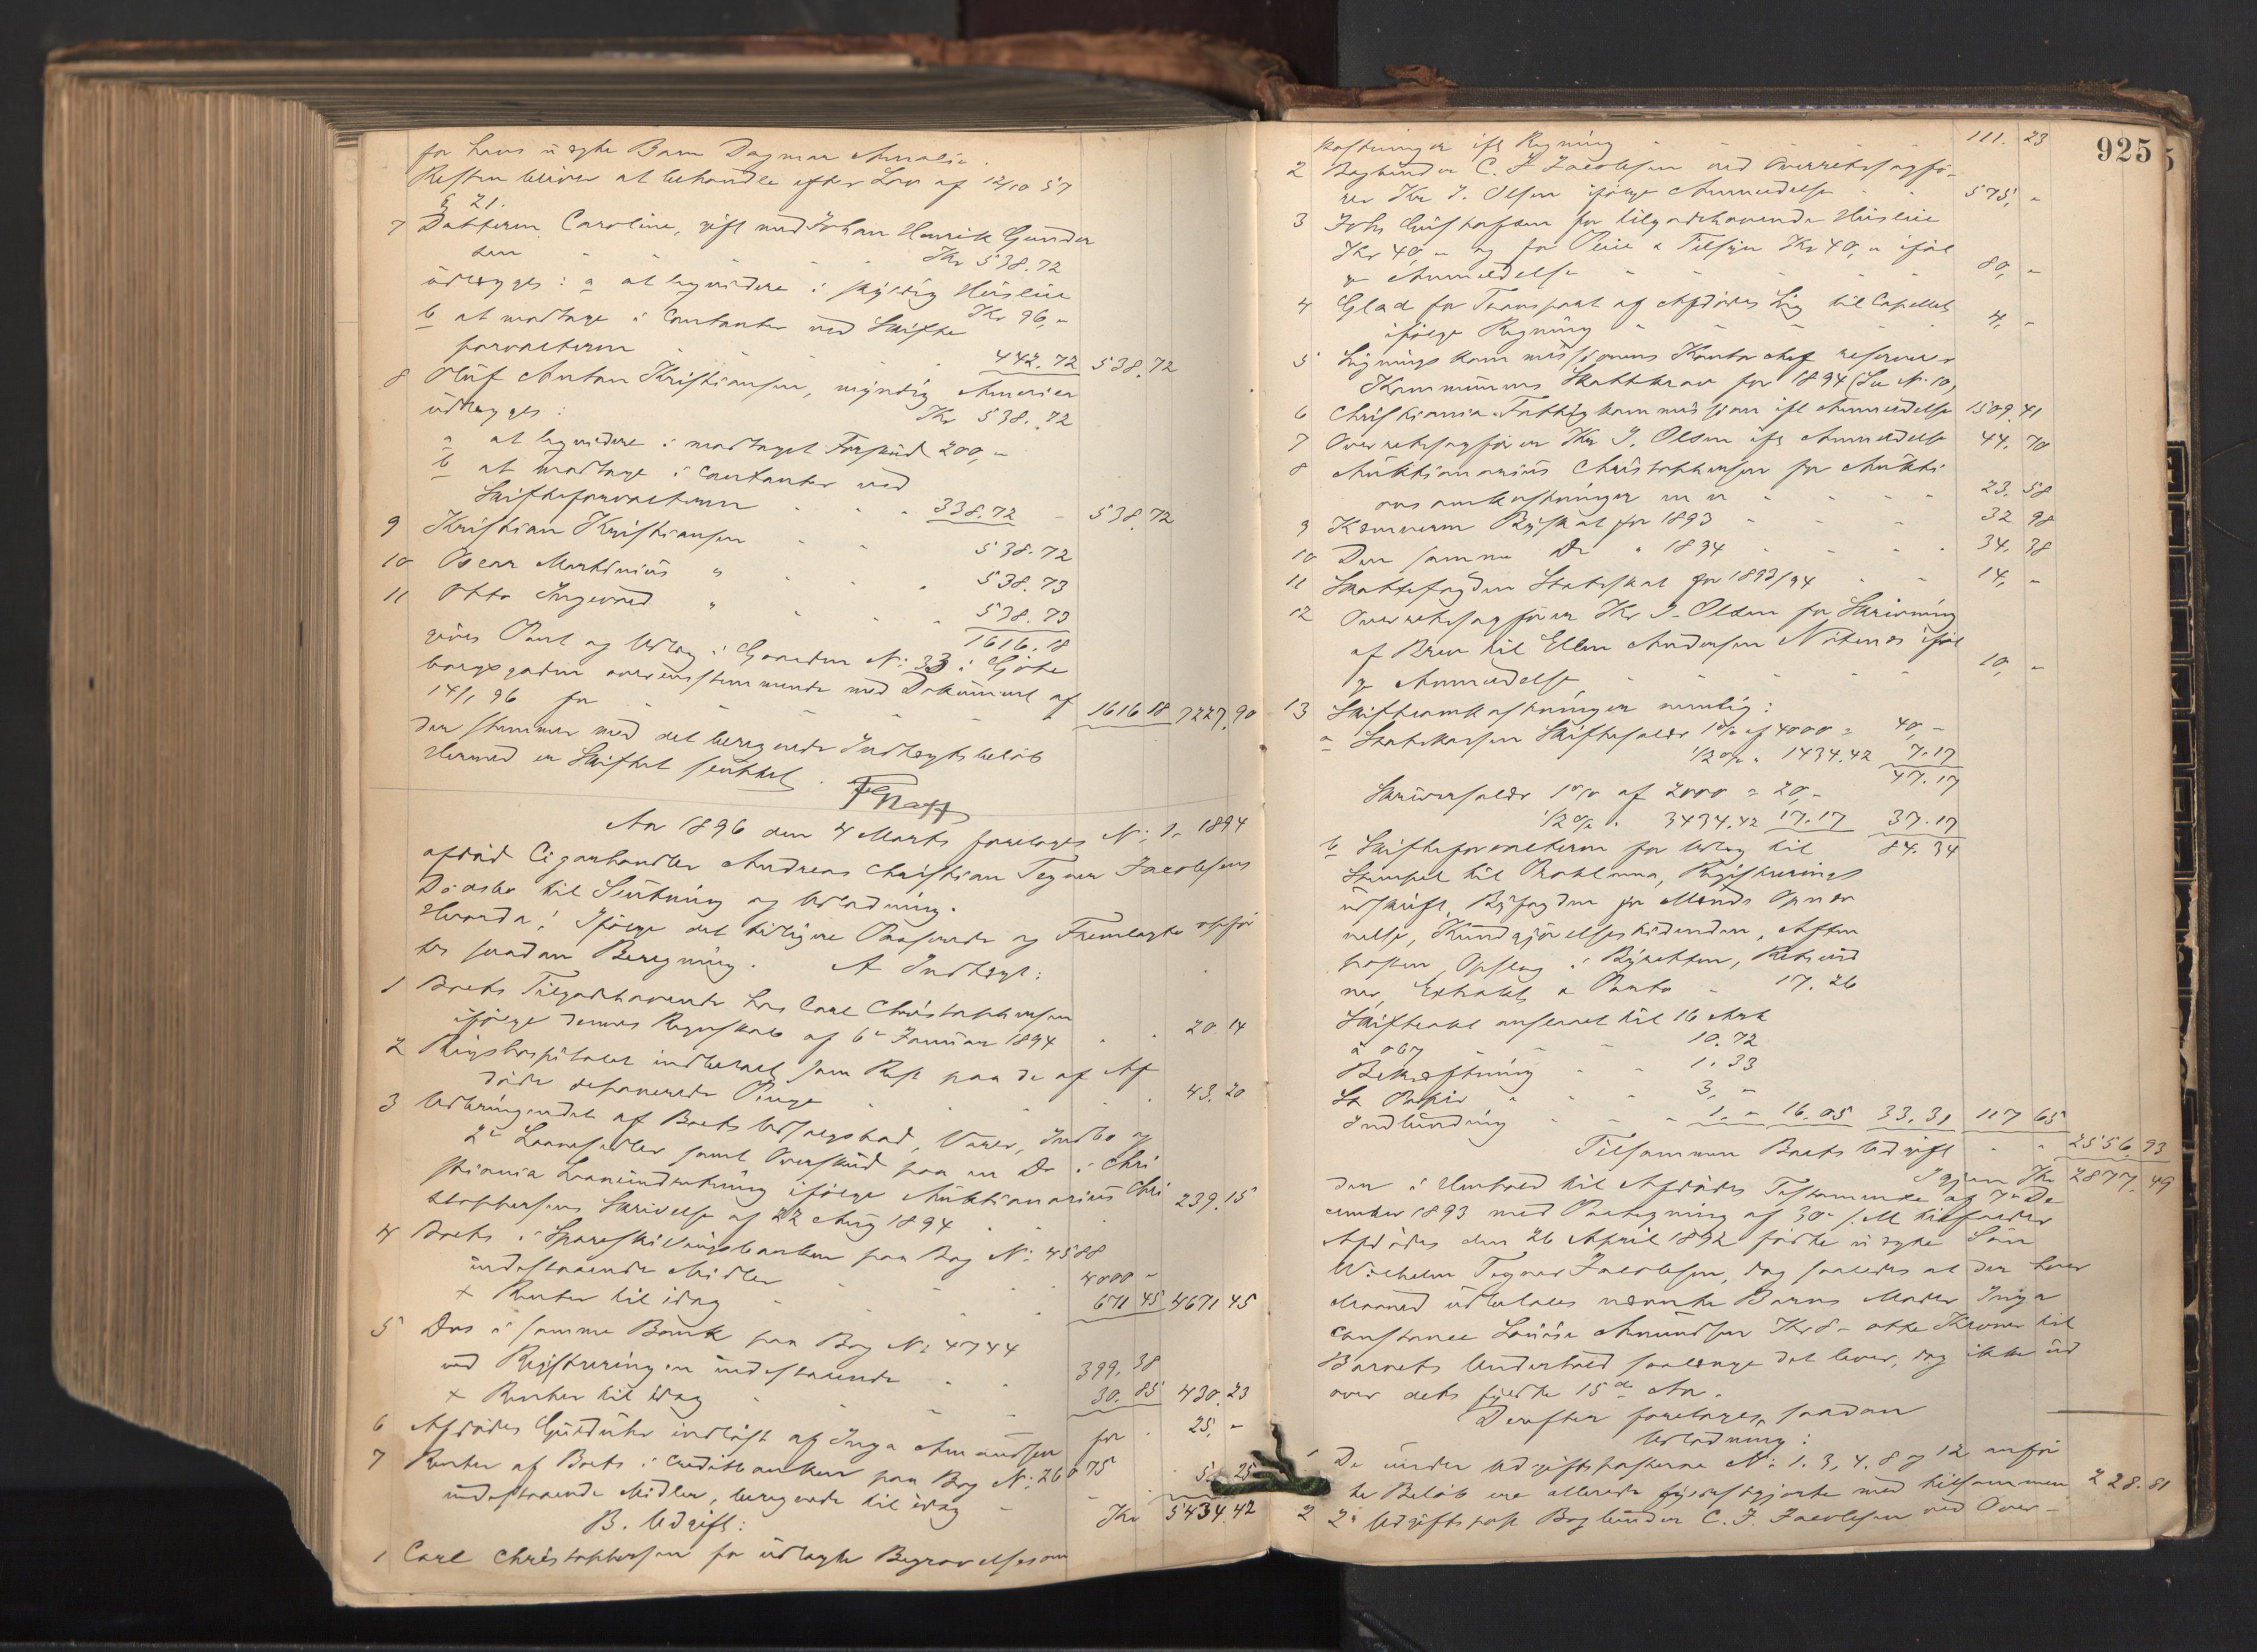 for hans u ægte Barn Dagmar Amalie.
Resten bliver at behandle efter Lov af 12/10 57
§ 21.
7 Datteren Caroline, gift med Johan Henrik Gunder
sen " " " Kr 538.72
udlægges: a at liqvidere i skyldig Husleie
Kr 96,-
b at modtage i Contanter ved Skifte
forvalteren 442.72 538.72
8 Oluf Anton Kristiansen, myndig Amerika
udlægges: Kr 538.72
a at liqvidere i modtaget Forskud 200,-
b at modtage i Contanter ved
Skifteforvalteren 338.72 - 538.72
9 Kristian Kristiansen " 538.72
10 Oscar Martinius " 538.73
11 Otto Ingevald " 538.73
1616.18
gives Part og Udlæg i Gaarden N: 33 i Gøte
borggaden overensstemmende med Dokument af
14/1 96 for 1616 18 7227.90
der stemmer med det beregnede Indtægtsbeløb
Hermed er Skiftet sluttet.
Aar 1896 den 4 Marts foretoges N: 1. 1894
afdød Cigarhandler Andreas Christian Tegner Jacobsens
Dødsbo til Slutning og Udlodning.
Hvorda: Ifølge det tidligere Passerede og Fremlagte opfør
tes saadan Beregning. A Indtægt:
1 Boets Tilgodehavende hos Carl Christophersen
ifølge dennes Regnskab af 6te Januar 1894 20.14
2 Rigshospitalet indbetalt som Rest paa de af Af
døde deponerede Penge 43.20
3 Udbringendet af Boets Udsalgsbod, Varer, Indbo og
2de Laanesedler samt Overskud paa en Do i Chri
stiania Laaneindretning ifølge Auktionarius Chri
stophersens Skrivelse af 22 Aug 1894 239.15
4 Boets i Sparekillingsbanken paa Bog N: 4588
indestaaende Midler 4000 -
+ Renter til idag 671 45 4671 45
5 Dos i samme Bank paa Bog N: 4744
ved Registreringen indestaaende 399.38
+ Renter til idag 30.85 430.23
6 Afdødes Guldur indløst af Inga Amundsen for 25,-
7 Renter af Boets i Creditbanken paa Bog N: 26075
indestaaende Midler, beregnede til idag 5.25
Kr 5434.42
B. Udgift:
1 Carl Christophersen for udlagte Begravelsesom
925
kostninger ifl Regning 111. 23
2 Bogbinder C. J Jacobsen ved Overretssagfø-
rer Kr J. Olsen ifølge Anmeldelse 575, -
3 Johs Gustafsen for tilgodehavende Husleie
Kr 40,- og for Pleie & Tilsyn Kr 40,- iføl
ge Anmeldelse 80, -
4 Glad for Transport af Afdødes Lig til Capellet
ifølge Regning 4, -
5 Ligningskommissionens Kontorchef reserverer
Kommunens Skattekrav for 1894 (Se N: 10)
6 Christiania Fattigkommission ifl Anmeldelse 1509.41
7 Overretssagfører Kr J. Olsen ifl Anmeldelse 44. 70
8 Auktionarius Christophersen for Aukti
onsomkostninger m m 23. 58
9 Kæmneren Byskat for 1893 32 98
10 Den samme Do " 1894 34. 38
11 Skattefogden Statsskat for 1893/94 14, -
12 Overretssagfører Kr J. Olsen for Skrivning
af Brev til Ellen Andersen iføl
ge Anmeldelse 10, -
13 Skifteomkostninger nemlig:
a Statskassen Skiftesalær 1% af 4000 = 40,-
1/2% " 1434.42 7.17
47.17
Skriversalær 1% af 2000 = 20,-
1/2% " 3434.42 17.17 37.17
b Skifteforvalteren for Udlæg til 84.34
Stempel til Proklama, Registrerings
udskrift, Byfogden for Mænds Opnæv
nelse, Kundgjørelsestidenden, Aften
posten, Opslag i Byretten, Retsvid
ner, Extrakt & Porto 17.26
Skifteakt anslaaet til 16 Ark
à 067 10.72
Bekræftning 1.33
St Papir 3,-
Indbinding 1.- 16.05 33.31 117 65
Tilsammen Boets Udgift 2556.93
Igjen Kr 2877.49
der i Henhold til Afdødes Testamente af 7de De
cember 1893 med Paategning af 30te s. M tilfalder
Afdødes den 26 April 1892 fødte u ægte Søn
Wilhelm Tegner Jacobsen, dog saaledes at der hver
Maaned udbetales nævnte Barns Moder Inga
Constance Lovise Amundsen Kr 8 - otte Kroner til
Barnets Underhold saalænge det lever, dog ikke ud
over dets fyldte 15de Aar.
Derefter foretoges saadan
Udlodning:
1 De under Udgiftsposterne N: 1. 3, 4. 8 og 12 anfør
te Beløb ere allerede fyldestgjorte med tilsammen 228.81
2 2den Udgiftspost Bogbinder C. J. Jacobsen ved Over-